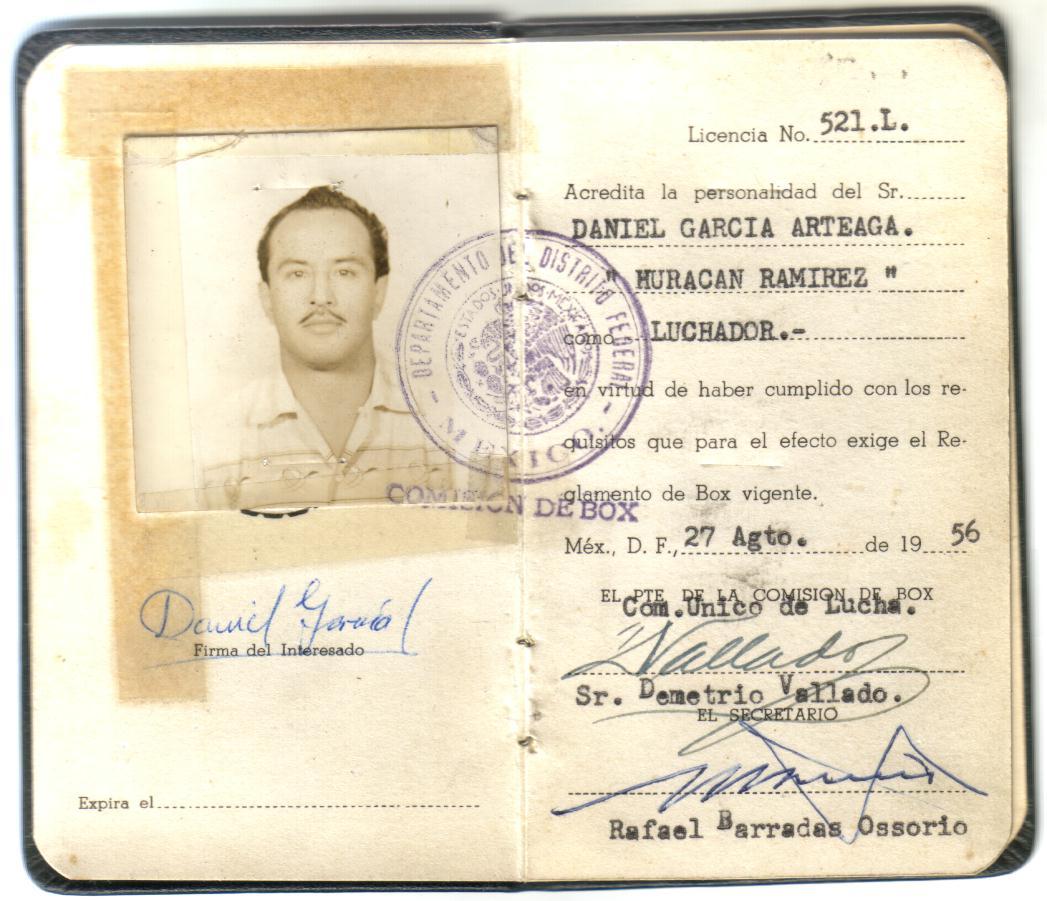 Daniel García
Firma del Interesado
Expira el
Licencia No. 521.L.
Acredita la personalidad del Sr.
DANIEL GARCIA ARTEAGA.
" HURACAN RAMIREZ "
como LUCHADOR.-
en virtud de haber cumplido con los re-
quisitos que para el efecto exige el Re-
glamento de Box vigente.
Méx., D. F., 27 Agto. de 19 56
EL PTE DE LA COMISION DE BOX
Com.Unico de Lucha.
Vallado
Sr. Demetrio Vallado.
EL SECRETARIO
Rafael Barradas Ossorio
DEPARTAMENTO DEL DISTRITO FEDERAL
ESTADOS UNIDOS MEXICANOS
- MEXICO. -
COMISION DE BOX